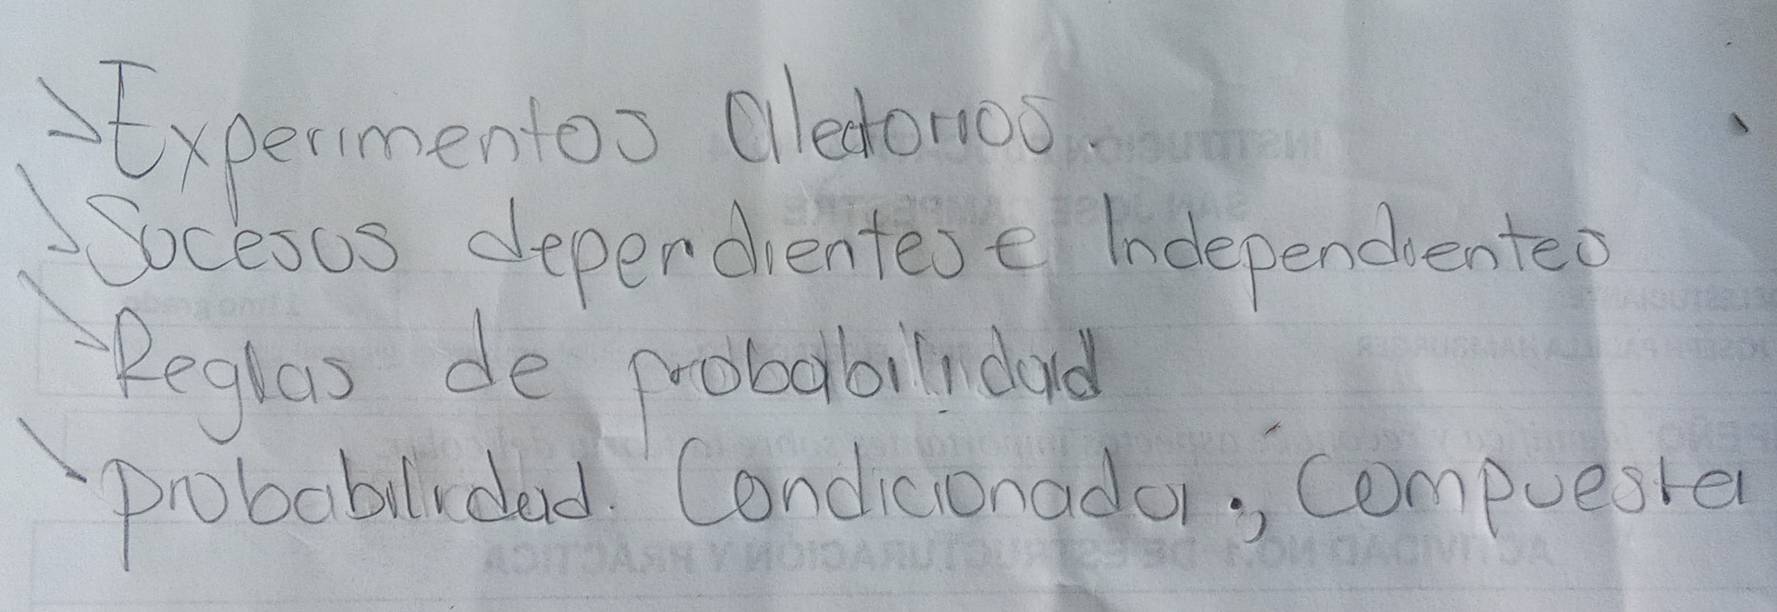 > Experimentos aletorios.
> Sucesos dependientes e Independientes
> Reglas de probabilidad
> probabilidad. Condicionada; Compuesta